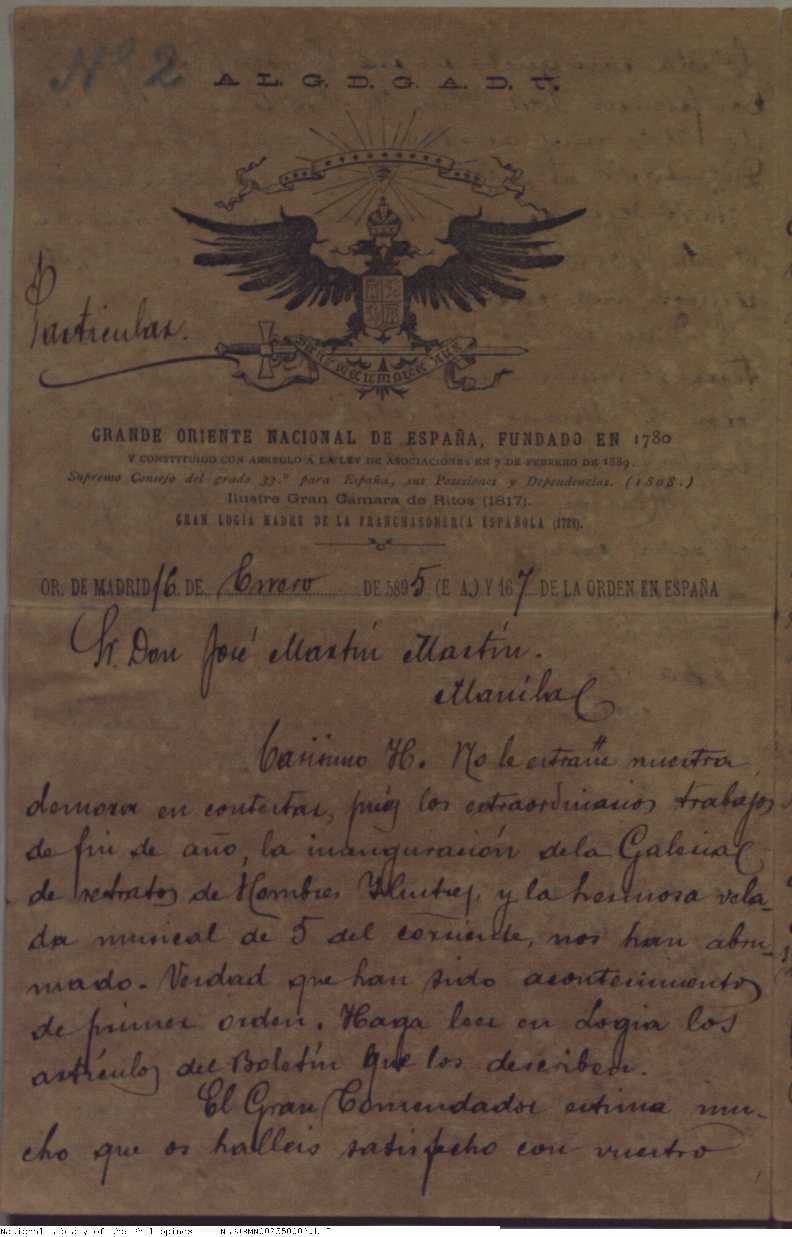 Nº 2
A L. G. D. G. A. D. U.
Particular.
GRANDE ORIENTE NACIONAL DE ESPAÑA, FUNDADO EN 1780
Y CONSTITUIDO CON ARREGLO Á LA LEY DE ASOCIACIONES EN 7 DE FEBRERO DE 1889.
Supremo Consejo del grado 33.º para España, sus Posesiones y Dependencias. (1808.)
Ilustre Gran Cámara de Ritos (1817).
GRAN LOGIA MADRE DE LA FRANCMASONERÍA ESPAÑOLA (1728).
OR. DE MADRID 16 DE Enero DE 5895 (E. A.) Y 167 DE LA ORDEN EN ESPAÑA
Sr. Don José Martín Martín.
Manila
Carísimo H. No le extrañe nuestra
demora en contestar, pues los extraordinarios trabajos
de fin de año, la inauguración de la Galeria
de retratos de Hombres Ilustres, y la hermosa vela-
da musical de 5 del corriente, nos han abru-
mado. Verdad que han sido acontecimientos
de primer orden. Haga leer en Logia los
artículos del Boletín que los describen.
El Gran Comendador estima mu-
cho que os halleis satisfecho con vuestro
National Library of the Philippines